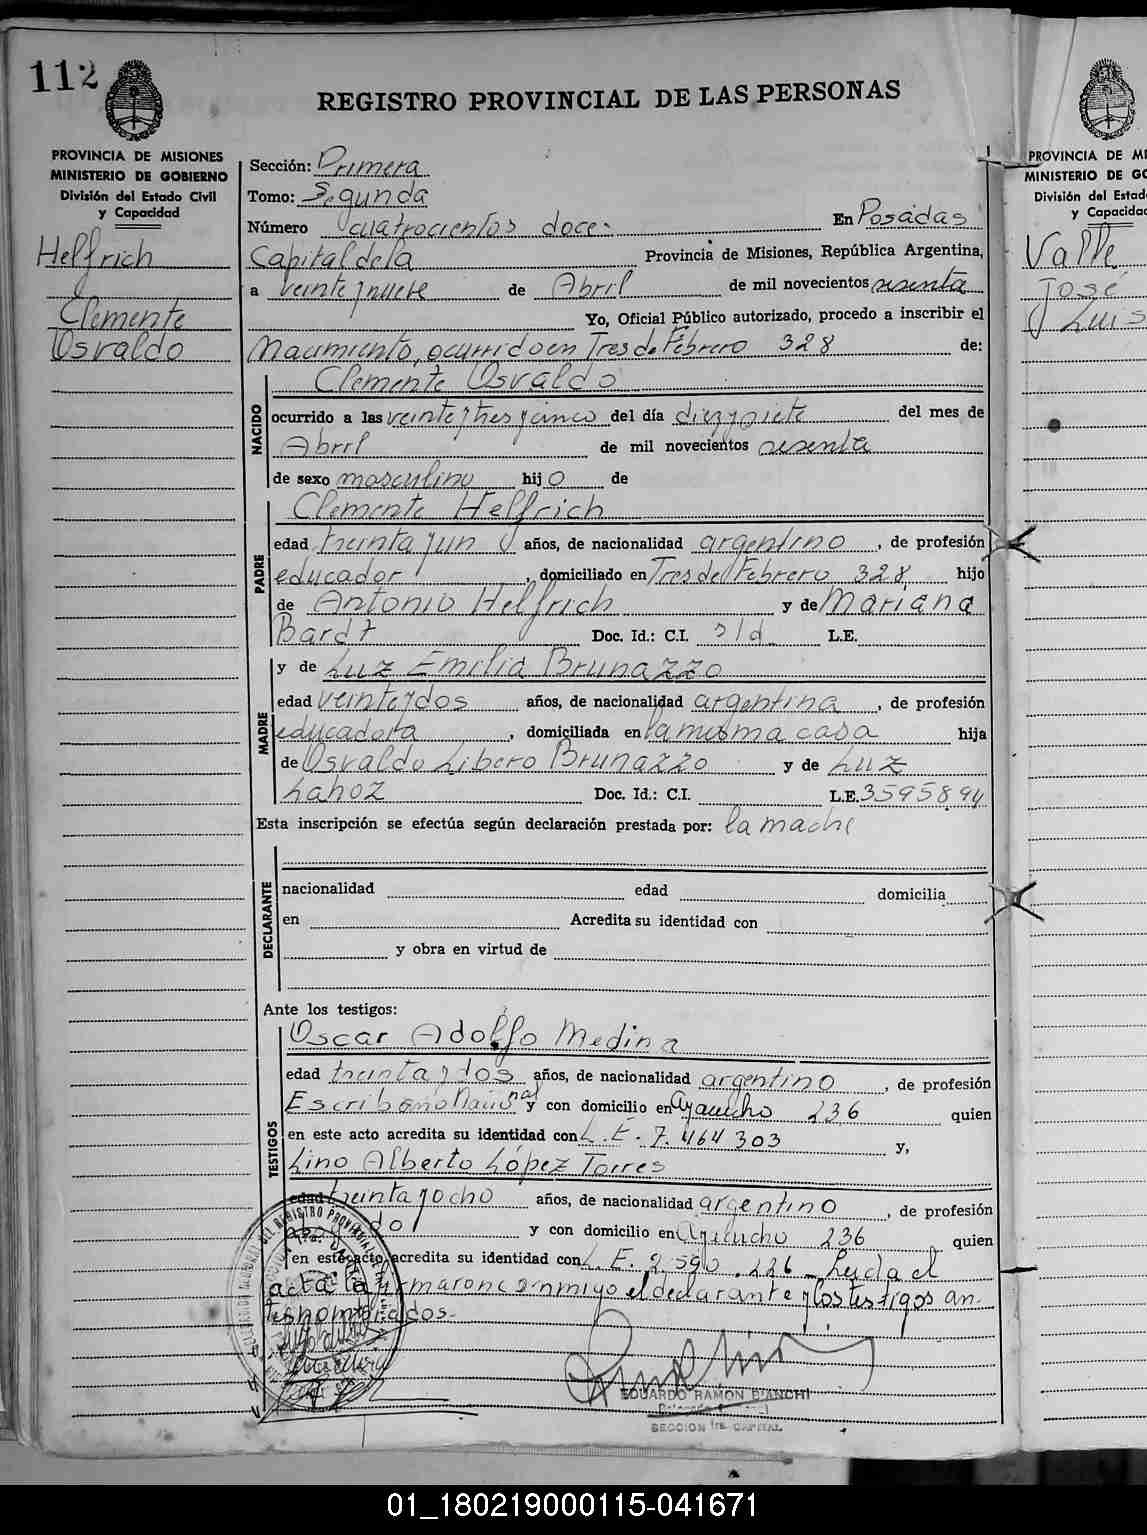 112
REGISTRO PROVINCIAL DE LAS PERSONAS
PROVINCIA DE MISIONES
MINISTERIO DE GOBIERNO
División del Estado Civil
y Capacidad
Helfrich
Clemente
Osvaldo
Sección: Primera
Tomo: Segunda
Número cuatrocientos doce: En Posadas
Capital de la Provincia de Misiones, República Argentina,
a veinte y nueve de Abril de mil novecientos sesenta
Yo, Oficial Público autorizado, procedo a inscribir el
Nacimiento, ocurrido en Tres de Febrero 328 de:
NACIDO
Clemente Osvaldo
ocurrido a las veinte y tres y cinco del día diez y siete del mes de
Abril de mil novecientos sesenta
de sexo masculino hijo de
PADRE
Clemente Helfrich
edad treinta y un años, de nacionalidad argentino, de profesión
educador, domiciliado en Tres de Febrero 328 hijo
de Antonio Helfrich y de Mariana
Bardt Doc. Id.: C.I. s/d L.E.
MADRE
y de Luz Emilia Brunazzo
edad veinte y dos años, de nacionalidad argentina, de profesión
educadora, domiciliada en la misma casa hija
de Osvaldo Libero Brunazzo y de Luz
Lahoz Doc. Id.: C.I. L.E. 3595894
Esta inscripción se efectúa según declaración prestada por: la madre
DECLARANTE
nacionalidad edad domicilia
en Acredita su identidad con
y obra en virtud de
Ante los testigos:
TESTIGOS
Oscar Adolfo Medina
edad treinta y dos años, de nacionalidad argentino, de profesión
Escribano Nacional y con domicilio en Ayacucho 236 quien
en este acto acredita su identidad con L.E. 7.464303 y,
Lino Alberto López Torres
edad treinta y ocho años, de nacionalidad argentino, de profesión
y con domicilio en Ayacucho 236 quien
en este acto acredita su identidad con L.E. 2.590.226 Leida el
acta la firmaron conmigo el declarante y los testigos an-
tes nombrados.-
EDUARDO RAMON BIANCHI
SECCION 1ra. CAPITAL
PROVINCIA DE MI
MINISTERIO DE GO
División del Estad
y Capacidad
Valle
José
Luis
01_180219000115-041671